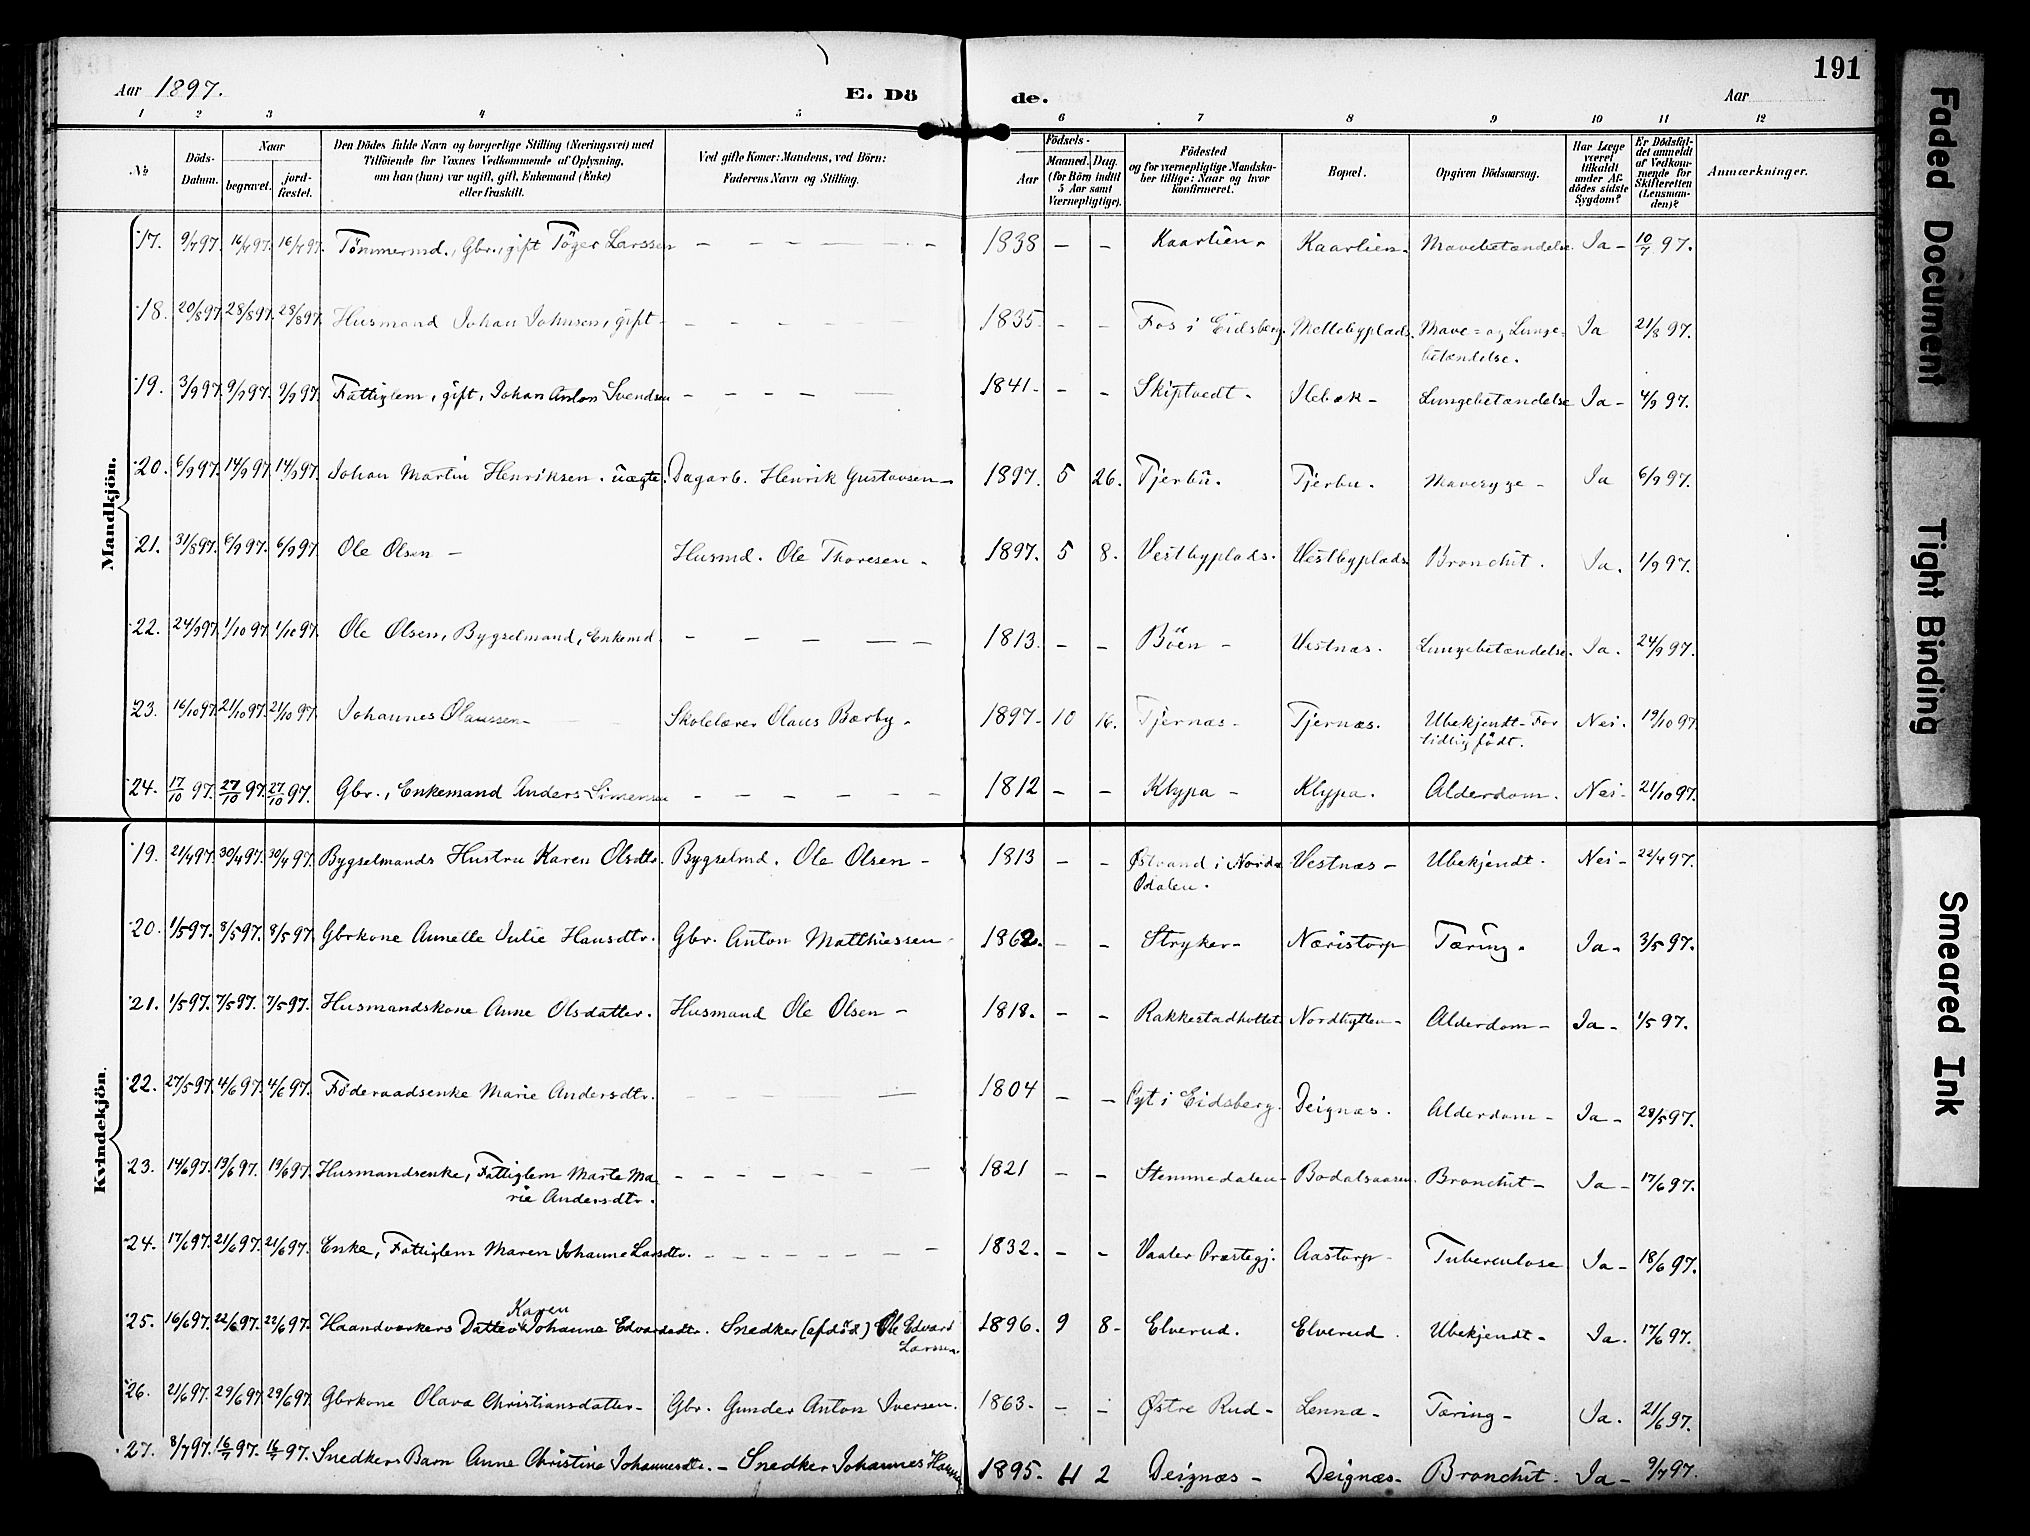 Aar 1897. E. Dö de. Aar 191
1 2 3 4 5 6 7 8 9 10 11 12
№ Döds-Datum. Naar begravet. jord-fæstet. Den Dödes fulde Navn og borgerlige Stilling (Næringsvei) med Tilföiende for Voxnes Vedkommende af Oplysning, om han (hun) var ugift, gift, Enkemand (Enke) eller fraskilt. Ved gifte Koner: Mandens, ved Börn: Faderens Navn og Stilling. Födsels- Aar Maaned. Dag. (for Börn indtil 5 Aar samt Værnepligtige). Födested og for værnepligtige Mandska-ber tillige: Naar og hvor konfirmeret. Bopæl. Opgiven Dödsaarsag. Har Læge været tilkaldt under Af-dödes sidste Sygdom? Er Dödsfal-det anmeldt af Vedkom-mende for Skifteretten (Lensman-den)? Anmærkninger.
Mandkjön.
17. 9/7 97. 16/7 97. 16/7 97. Tömmermd., Gbr., gift Töger Larssen – – – – – 1838 – – Kaarlien. Kaarlien. Mavebetændelse Ja – 10/7 97.
18. 20/8 97. 28/8 97. 28/8 97. Husmand Johan Johnsen, gift – – – – – 1835. – – Fos i Eidsberg. Mellebyplads. Mave- og Lunge-
betændelse. Ja 21/8 97.
19. 3/9 97. 9/9 97. 9/9 97. Fattiglem, gift, Johan Anton Svendsen – – – – – 1841. – – Skiptvedt. Ilebæk – Lungebetændelse Ja – 4/9 97.
20. 6/9 97. 14/9 97. 14/9 97. Johan Martin Henriksen. uægte. Dagarb. Henrik Gustavsen – 1897. 5 26. Tjerbu. Tjerbu. Mavesyge – Ja 6/9 97.
21. 31/8 97. 6/9 97. 6/9 97. Ole Olsen – Husmd. Ole Thoresen. 1897. 5 8. Vestbyplads. Vestbyplads. Bronchit. Ja. 1/9 97.
22. 24/9 97. 1/10 97. 1/10 97. Ole Olsen, Bygselmand, Enkemd. – – – – – 1813. – – Böen – Vestnæs. Lungebetændelse. Ja. 24/9 97.
23. 16/10 97. 21/10 97. 21/10 97. Johannes Olaussen – Skolelærer Olaus Bærby. 1897. 10 16. Tjernæs. Tjernæs. Ubekjendt – For
tidlig født. Nei. 19/10 97.
24. 17/10 97. 27/10 97. 27/10 97. Gbr., Enkemand Anders Simensen – – – – – 1812 – – Klypa – Klypa. Alderdom. Nei – 21/10 97.
Kvindekjön.
19. 21/4 97. 30/4 97. 30/4 97. Bygselmands Hustru Karen Olsdtr. Bygselmd. Ole Olsen – 1813 – – Østvand i Nordre
Odalen. Vestnæs – Ubekjendt. Nei – 22/4 97.
20. 1/5 97. 8/5 97. 8/5 97. Gbrkone Annette Julie Hansdtr. Gbr. Anton Matthiessen – 1862. – – Stryker – Næristorp Tæring. Ja – 3/5 97.
21. 1/5 97. 7/5 97. 7/5 97. Husmandskone Anne Olsdatter. Husmand Ole Olsen – 1818. – – Rakkestadhuttet Nordhytten – Alderdom – Ja – 1/5 97.
22. 27/5 97. 4/6 97. 4/6 97. Føderaadsenke Marie Andersdtr. – – – – – 1804 – – i Eidsberg. Deignæs. Alderdom – Ja – 28/5 97.
23. 14/6 97. 19/6 97. 19/6 97. Husmandsenke, Fattiglem Marte Ma
rie Andersdtr. – – – – – 1821 – – Stemmedalen – Bodalsaasen. Bronchit – Ja – 17/6 97.
24. 17/6 97. 21/6 97. 21/6 97. Enke, Fattiglem Maren Johanne Larsdtr. – – – – – 1832. – – Vaaler Præstegj. Aastorp – Tuberculose Ja – 18/6 97.
25. 16/6 97. 22/6 97. 22/6 97. Haandværkers Datter Karen Johanne Edvardsdtr. Snedker (afdöd) Ole Edvard
Larssen. 1896. 9 8. Elverud. Elverud. Ubekjendt – Ja. 17/6 97.
26. 21/6 97. 29/6 97. 29/6 97. Gbrkone Olava Christiansdatter – Gbr. Gunder Anton Iversen. 1863. – – Østre Rud – Lenna – Tæring – Ja. 21/6 97.
27. 8/7 97. 16/7 97. 16/7 97. Snedkers Barn Anne Christine Johannesdtr. – Snedker Johannes 1895. 4 2 Deignæs – Deignæs – Bronchit. Ja – 9/7 97.
Faded Document
Tight Binding
Smeared Ink